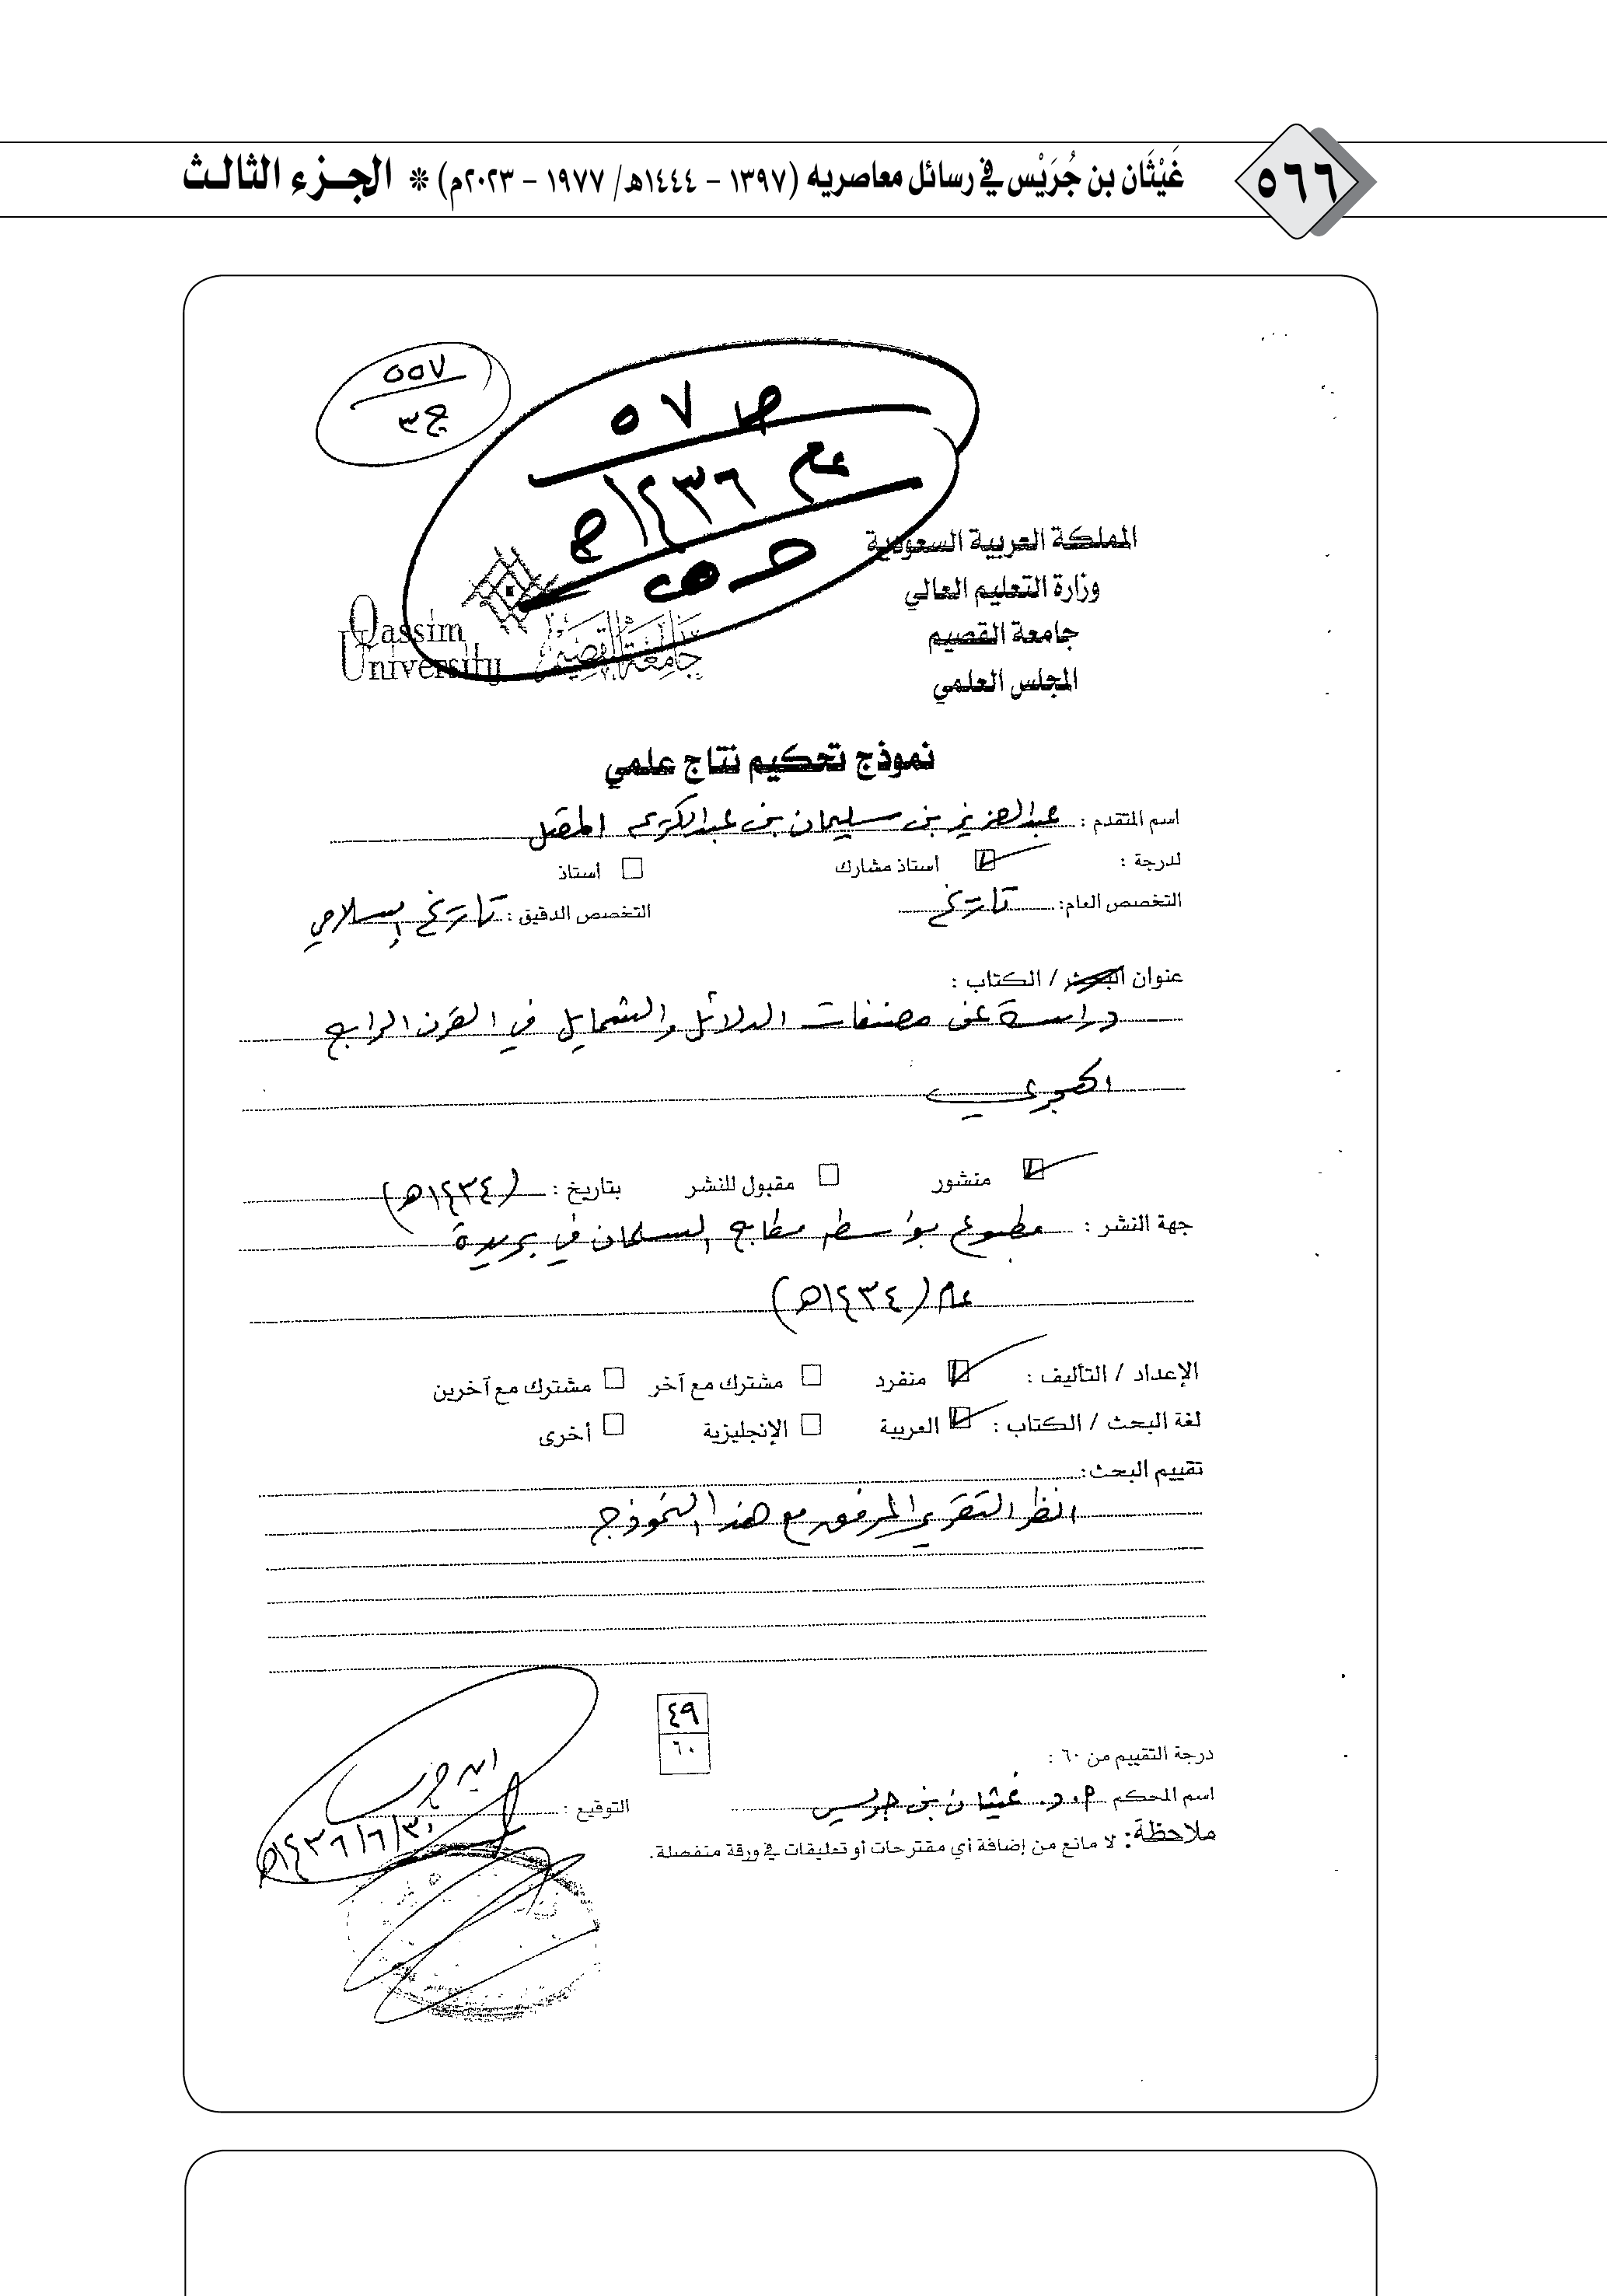 ٥٦٦
غَيْثَان بن جُرَيْس في رسائل معاصريه (١٣٩٧ - ١٤٤٤هـ/ ١٩٧٧ - ٢٠٢٣م) * الجزء الثالث
٥٥٧
ج٣
ص ٥٧
عام ١٤٣٦هـ
المملكة العربية السعودية
وزارة التعليم العالي
جامعة القصيم
المجلس العلمي
Qassim
University
جامعة القصيم
نموذج تحكيم نتاج علمي
اسم المتقدم : عبدالعزيز بن سليمان بن عبدالكريم المقبل
لدرجة : أستاذ مشارك أستاذ
التخصص العام: تاريخ التخصص الدقيق : تاريخ إسلامي
عنوان البحث / الكتاب :
دراسة عن مصنفات الدلائل والشمايل في القرن الرابع
الهجري
منشور مقبول للنشر بتاريخ : (١٤٣٤هـ)
جهة النشر : مطبوع بواسطة مطابع السلمان في بريدة
عام (١٤٣٤هـ)
الإعداد / التأليف : منفرد مشترك مع آخر مشترك مع آخرين
لغة البحث / الكتاب : العربية الإنجليزية أخرى
تقييم البحث:
انظر التقرير المرفق مع هذا النموذج
درجة التقييم من ٦٠ : ٤٩
٦٠
اسم المحكم أ.د. غيثان بن جريس التوقيع : ابن جريس
١٤٣٦/٦/٣٠هـ
ملاحظة: لا مانع من إضافة أي مقترحات أو تعليقات في ورقة منفصلة.